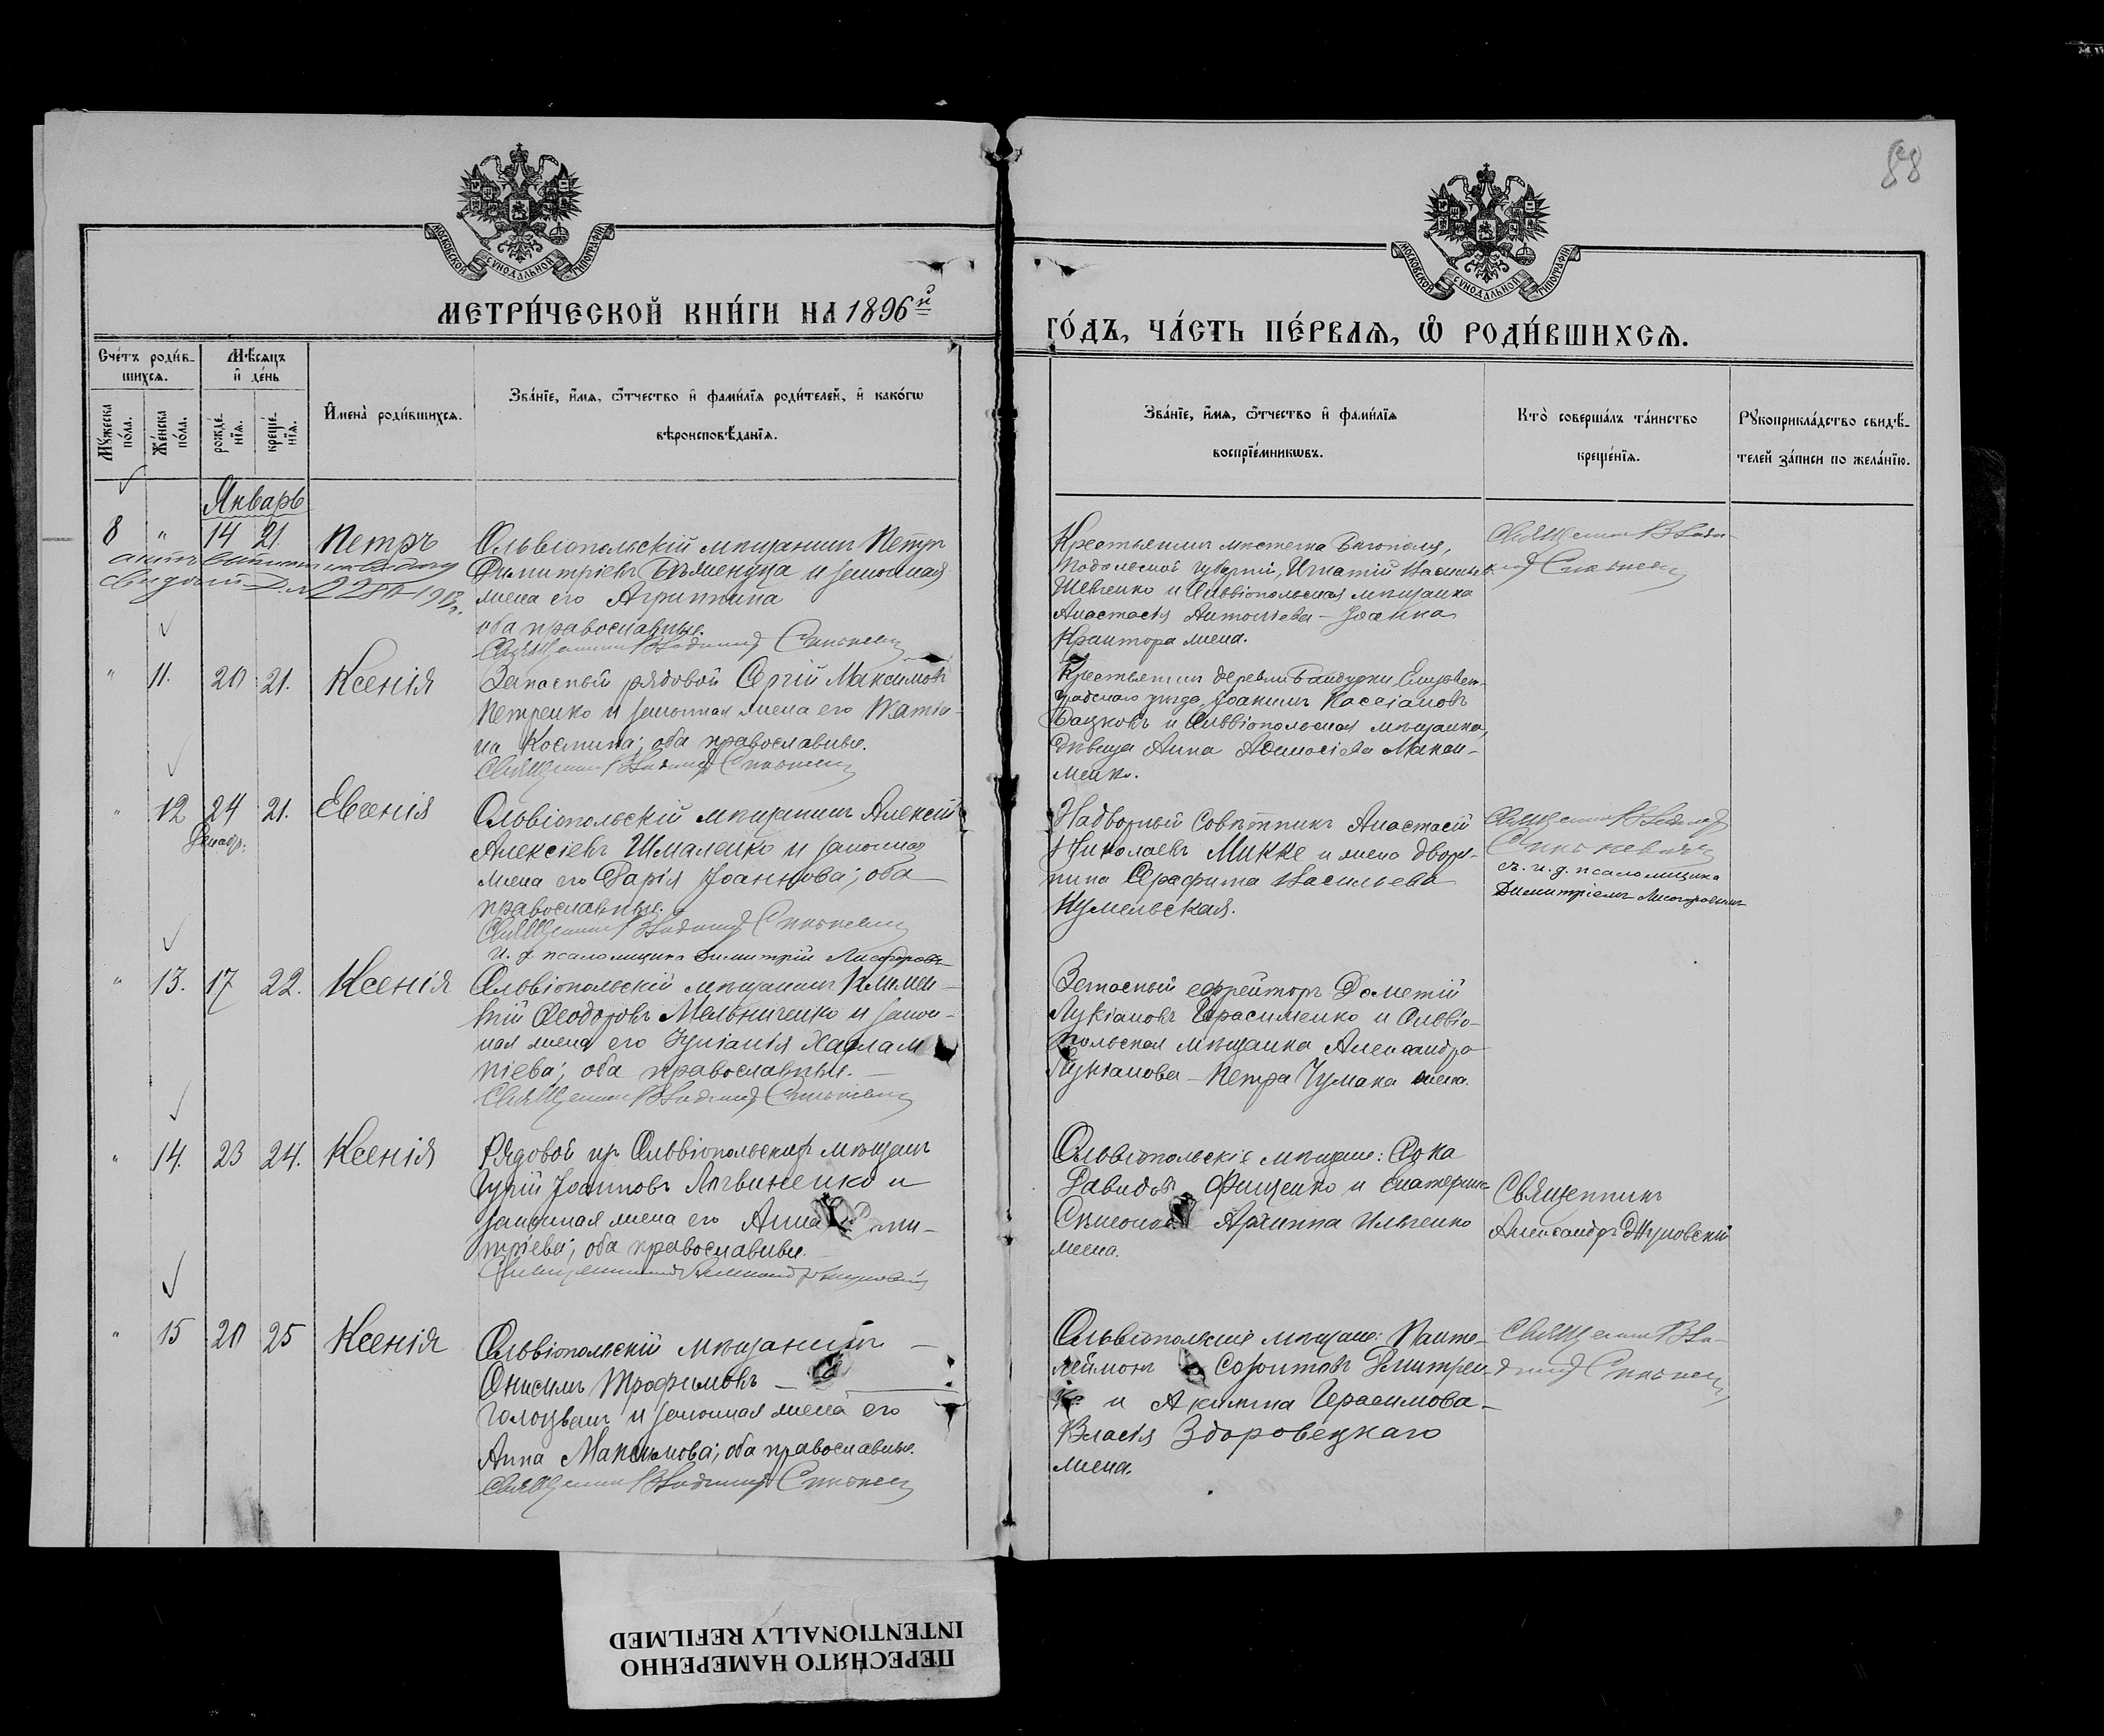 88
МОСКОВСКОЙ СУНОДАЛЬНОЙ ТИПОГРАФІИ
МОСКОВСКОЙ СУНОДАЛЬНОЙ ТИПОГРАФІИ
МЕТРИ́ЧЕСКОЙ КНИ́ГИ НА 1896й
ГО́ДЪ, ЧА́СТЬ ПЕ́РВАѦ, Ѡ҆ РОДИ́ВШИХСѦ.
Сче́тъ роди́в-
шихсѧ.
Мѣ́сѧцъ
и҆ де́нь
Мꙋ́жеска
по́ла.
Же́нска
по́ла.
рожде́-
нїѧ.
креще́-
нїѧ.
И҆мена̀ роди́вшихсѧ.
Зва́нїе, и҆́мѧ, ѻ҆́тчество и҆ фами́лїѧ роди́телей, и҆ како́гѡ
вѣроисповѣ́данїѧ.
Зва́нїе, и҆́мѧ, ѻ҆́тчество и҆ фами́лїѧ
воспрїе́мникѡвъ.
Кто̀ соверша́лъ та́инство
креще́нїѧ.
Рꙋкоприкла́дство свидѣ́-
телей за́писи по жела́нїю.
Январь
8 " 14 21. Петръ
Ольвіопольскій мѣщанинъ Петръ
Димитріевъ и законная
жена его Агриппина
оба православные.
Священникъ Владимір
Крестьянинъ мѣстечка Богополя,
Подольской губерніи, Игнатій Васильевъ
Шевченко и Ольвіопольская мѣщанка
Анастасія Антоніева – Іоанна
Крантора жена.
Священникъ Влади-
мір
" 11. 20 21. Ксенія
Запасный рядовой Сергій Максимовъ
Петренко и законная жена его Татія-
на Космина; оба православные.
Священникъ Владимір
Крестьянинъ деревни Елисавет-
градскаго уѣзда, Іоакимъ Кассіановъ
и Ольвіопольская мѣщанка,
дѣвица Анна Макси-
менко.
" 12 24 21. Евгенія
Декабр.
Ольвіопольскій мѣщанинъ Алексій
Алексіевъ Шмаленко и законная
жена его Дарія Іоаннова; оба
православные.
Священникъ Владимір
И. д. псаломщика Димитрій
Надворный Совѣтникъ Анастасій
Николаевъ Микке и жена дворя-
нина Серафима Васильева
Священникъ Владимір
съ и. д. псаломщика
Димитріемъ
" 13. 17 22. Ксенія
Ольвіопольскій мѣщанинъ Климен-
тій Ѳеодоровъ Мельниченко и закон-
ная жена его Іуліанія Харлам
піева; оба православные. –
Священникъ Владимір
Запасный ефрейторъ Дометій
Лукіановъ Герасименко и Ольвіо-
польская мѣщанка Александра
Лукіанова – Петра Чумака жена.
" 14. 23 24. Ксенія
Рядовой изъ Ольвіопольскихъ мѣщанъ
Гурій Іоанновъ Литвиненко и
законная жена его Анна Дими-
тріева; оба православные.
Священникъ Александръ
Ольвіопольскіе мѣщане:
Давидовъ Фищенко и Екатерина
Архиппа Ильченко
жена.
Священникъ
Александръ
" 15 20 25 Ксенія
Ольвіопольскій мѣщанинъ –
Онисимъ Трофимовъ –
Голоцванъ и законная жена его
Анна Максимова; оба православные.
Священникъ Владимір
Ольвіопольскіе мѣщане: Панте-
леймонъ Созонтовъ Дмитрен-
ко и Акилина Герасимова –
Власія Здоровецкаго
жена.
Священникъ Вла-
димір
ПЕРЕСНЯТО НАМЕРЕННО
INTENTIONALLY REFILMED